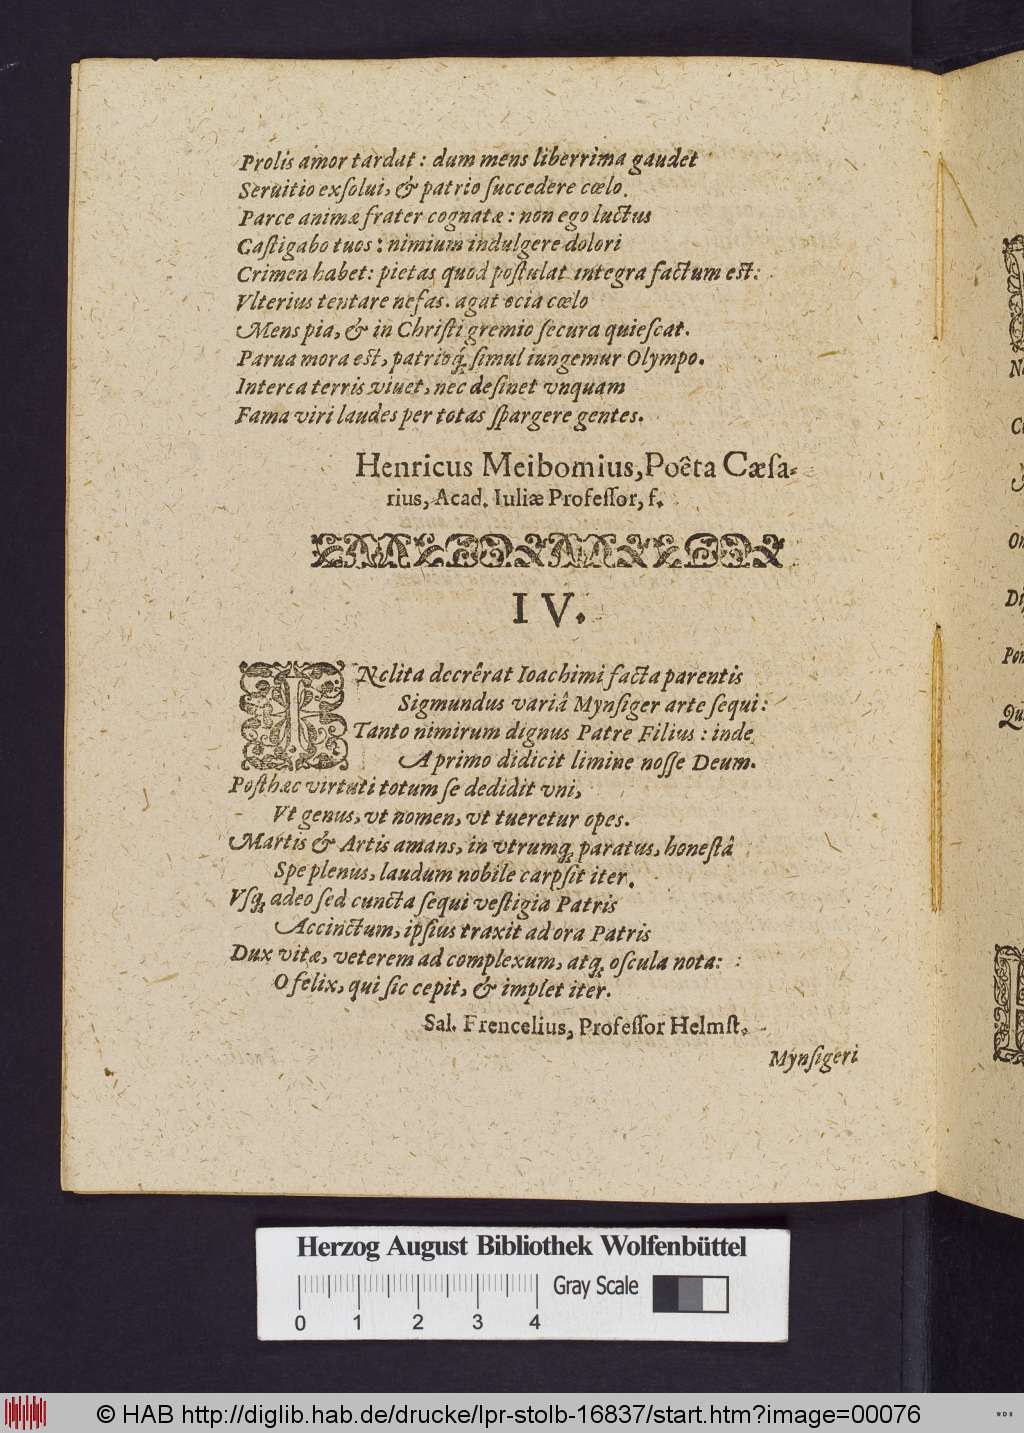 Prolis amor tardat : dum mens liberrima gaudet
Seruitio exſolui, & patrio ſuccedere cœlo.
Parce animæ frater cognatæ : non ego luctus
Caſtigabo tuos : nimium indulgere dolori
Crimen habet : pietas quod poſtulat integra factum est :
Vlterius tentare nefas. agat ocia cœlo
Mens pia, & in Chriſti gremio ſecura quieſcat.
Parua mora est, patrioq́; ſimul iungemur Olympo.
Interea terris viuet, nec deſinet vnquam
Fama viri laudes per totas ſpargere gentes.
Henricus Meibomius, Poêta Cæſa-
rius, Acad. Iuliæ Profeſſor, f.
IV.
INclita decrêrat Ioachimi facta parentis
Sigmundus variâ Mynſiger arte ſequi :
Tanto nimirum dignus Patre Filius : inde
A primo didicit limine noſſe Deum.
Poſthac virtuti totum ſe dedidit vni,
Vt genus, vt nomen, vt tueretur opes.
Martis & Artis amans, in vtrumq; paratus, honeſtâ
Spe plenus, laudum nobile carpſit iter.
Vſq; adeo ſed cuncta ſequi veſtigia Patris
Accinctum, ipſius traxit ad ora Patris
Dux vitæ, veterem ad complexum, atq; oſcula nota :
O felix, qui ſic cepit, & implet iter.
Sal. Frencelius, Profeſſor Helmſt.
Mynſigeri
Herzog August Bibliothek Wolfenbüttel
Gray Scale
0 1 2 3 4
© HAB http://diglib.hab.de/drucke/lpr-stolb-16837/start.htm?image=00076